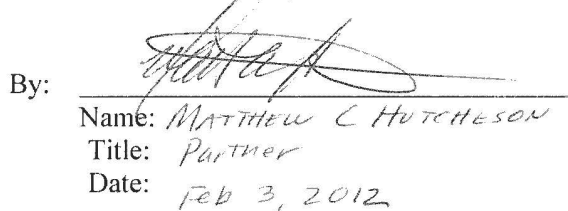 By:
Name: MATTHEW C HUTCHESON
Title: Partner
Date: Feb 3, 2012